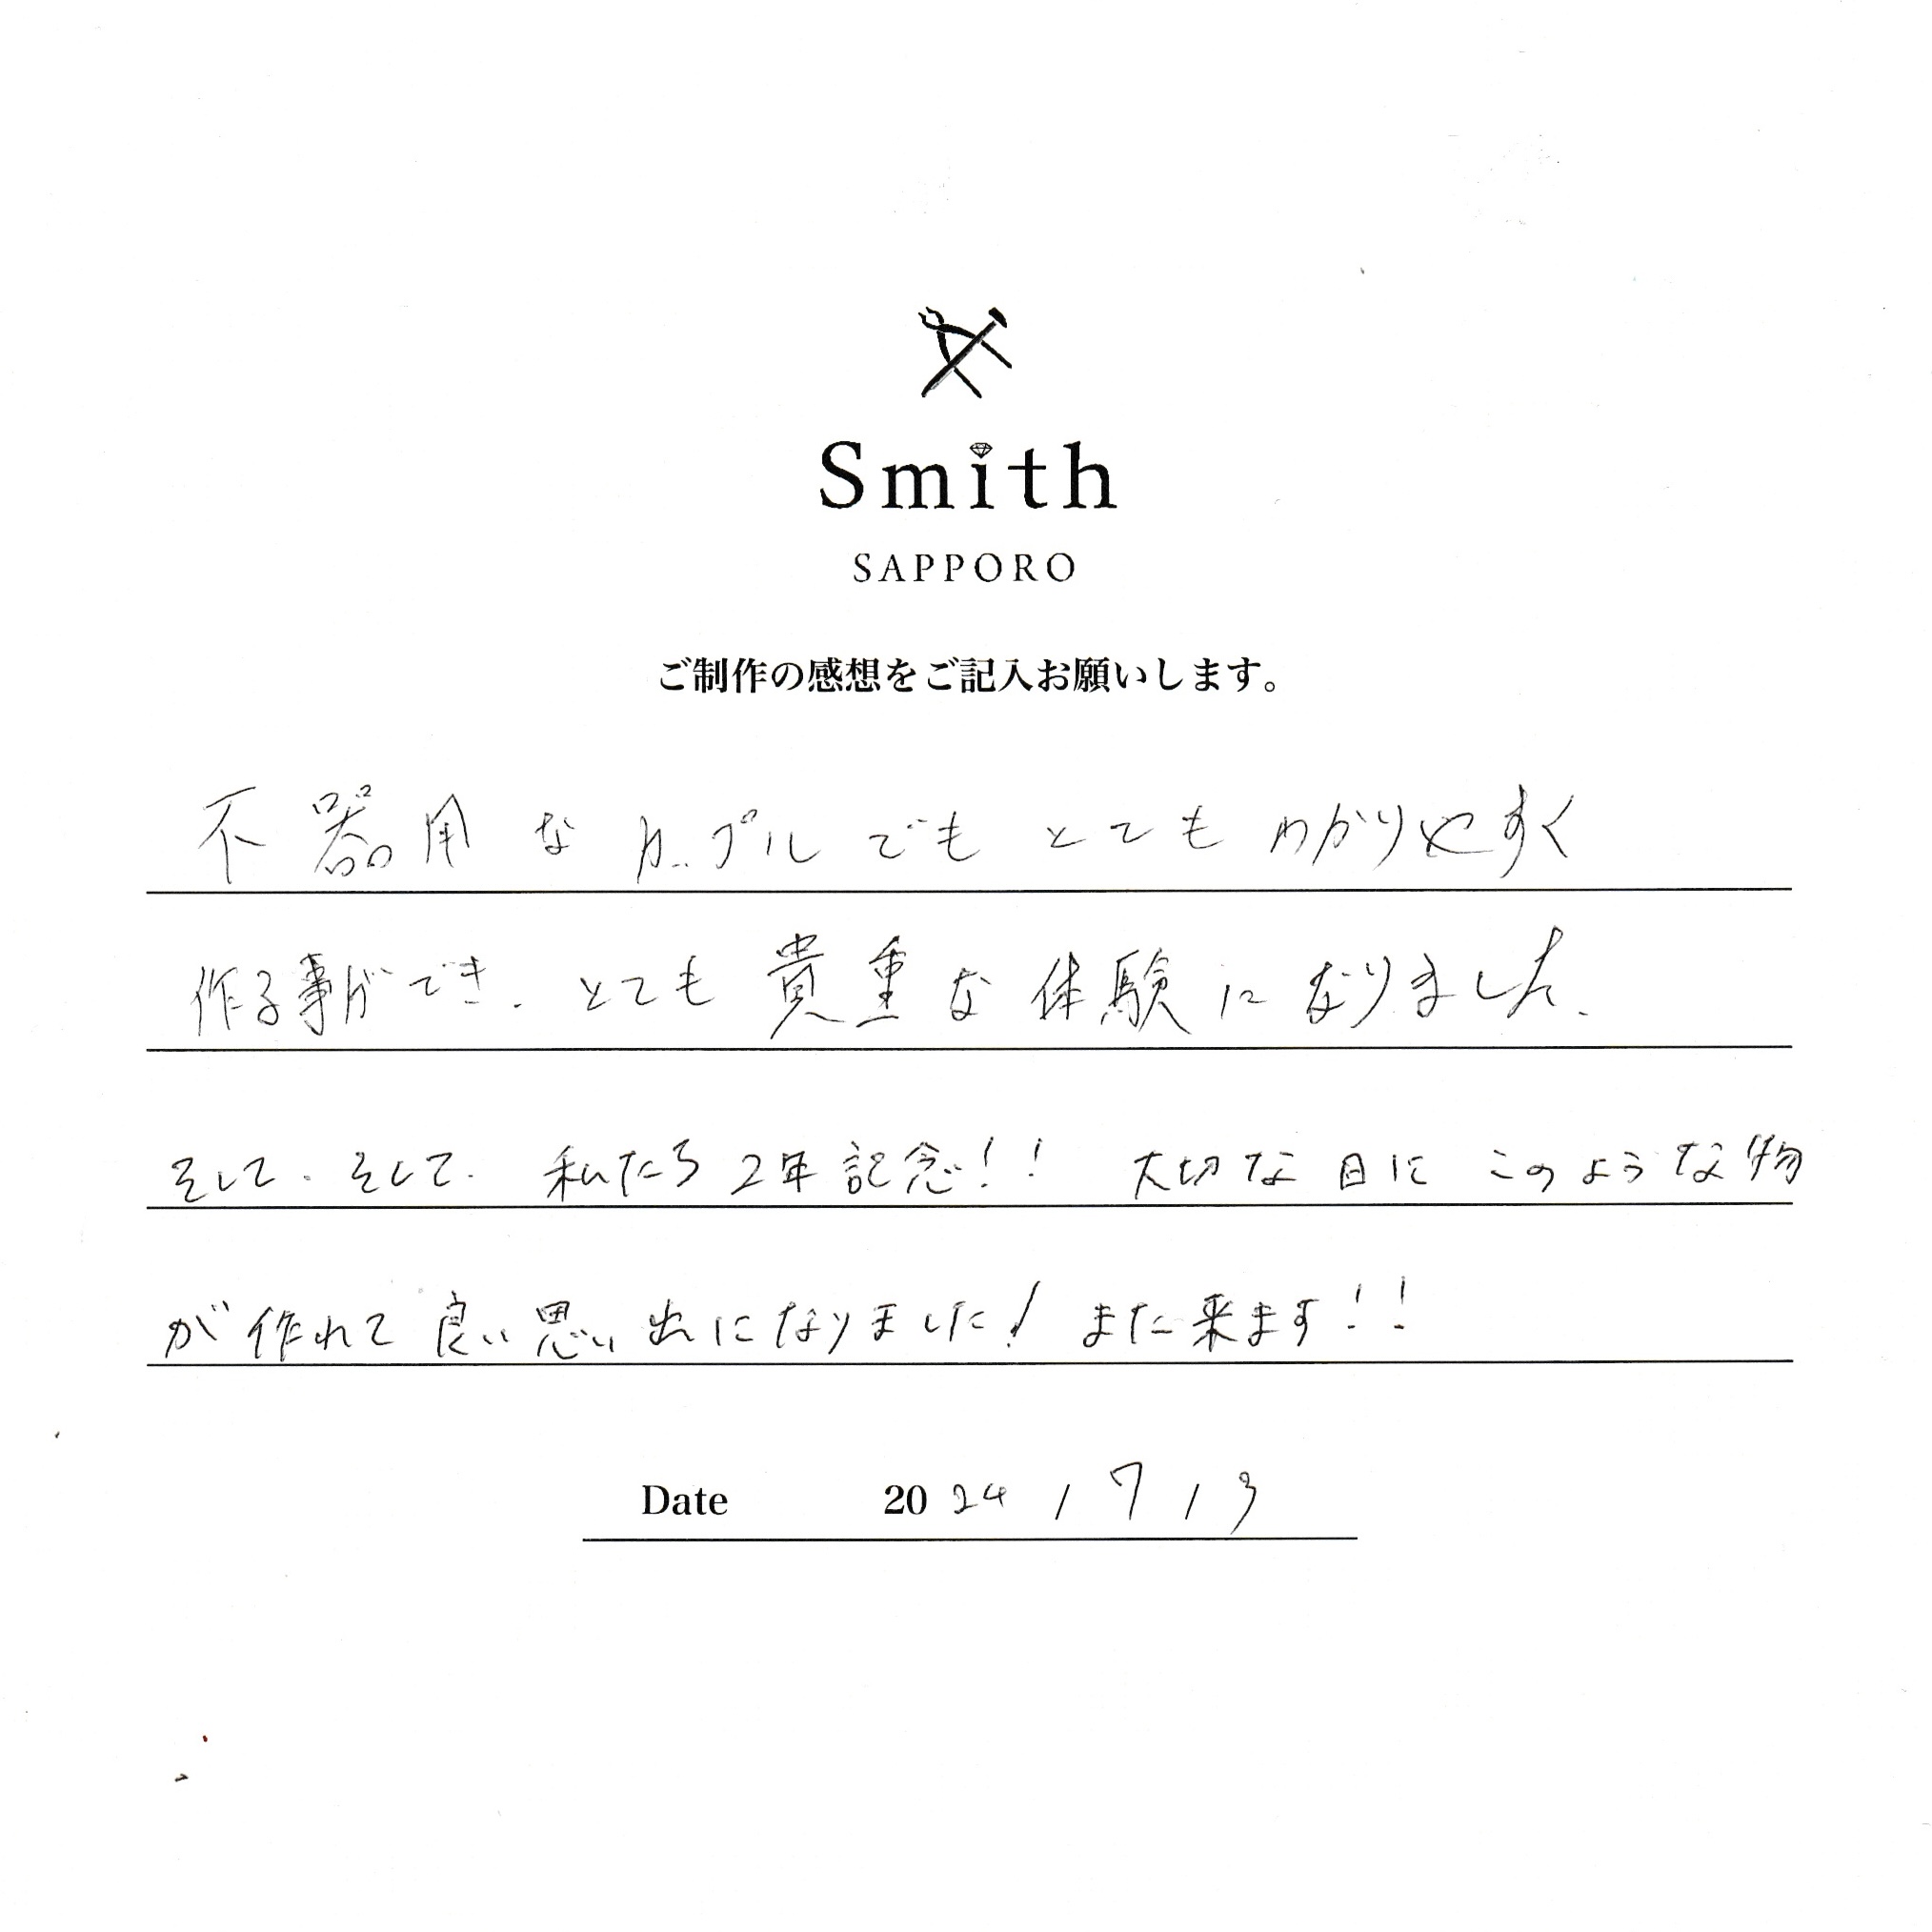 Smith
SAPPORO
ご制作の感想をご記入お願いします。
不器用なカップルでもとてもわかりやすく
作る事ができ、とても貴重な体験になりました。
そして、そして、私たち2年記念!! 大切な日にこのような物
が作れて良い思い出になりました! また来ます!!
Date 2024/7/3